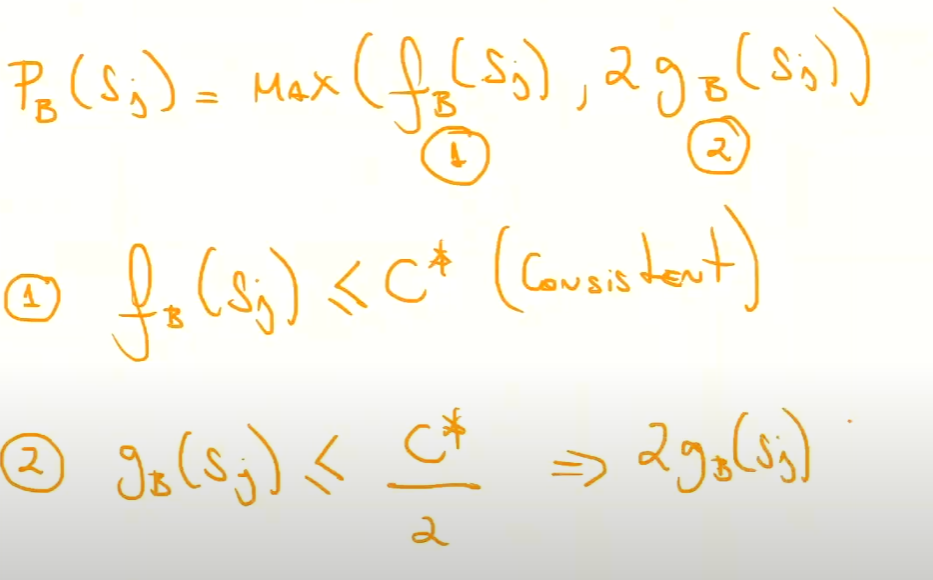 P_B(S_j) = MAX(f_B(S_j), 2g_B(S_j))
① ②
① f_B(S_j) ≤ C* (CONSISTENT)
② g_B(S_j) ≤ C*/2 ⇒ 2g_B(S_j)